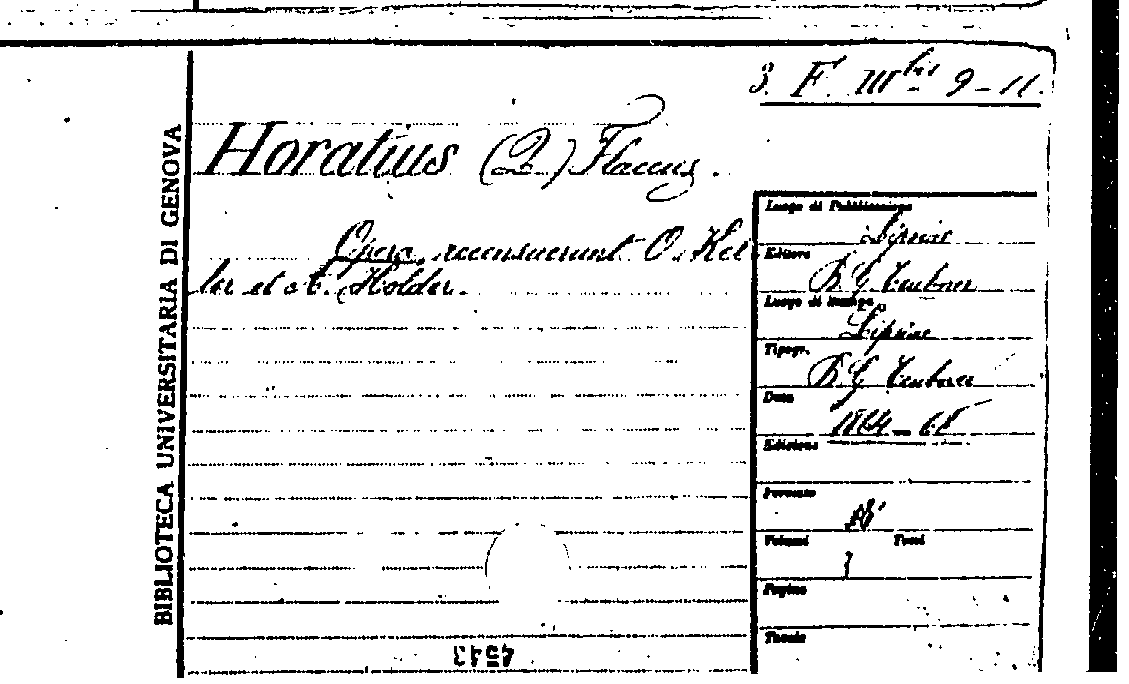 3. F. III bis 9-11.
BIBLIOTECA UNIVERSITARIA DI GENOVA
Horatius (Q.) Flaccus.
Opera, recensuerunt O. Kel
ler et A. Holder.
Luogo di Pubblicazione
Lipsiae
Editore
B. G. Teubner
Luogo di Stampa
Lipsiae
Tipogr.
B. G. Teubner
Data
Edizione
Formato
Volumi Tomi
3
Pagine
Tavole
4543